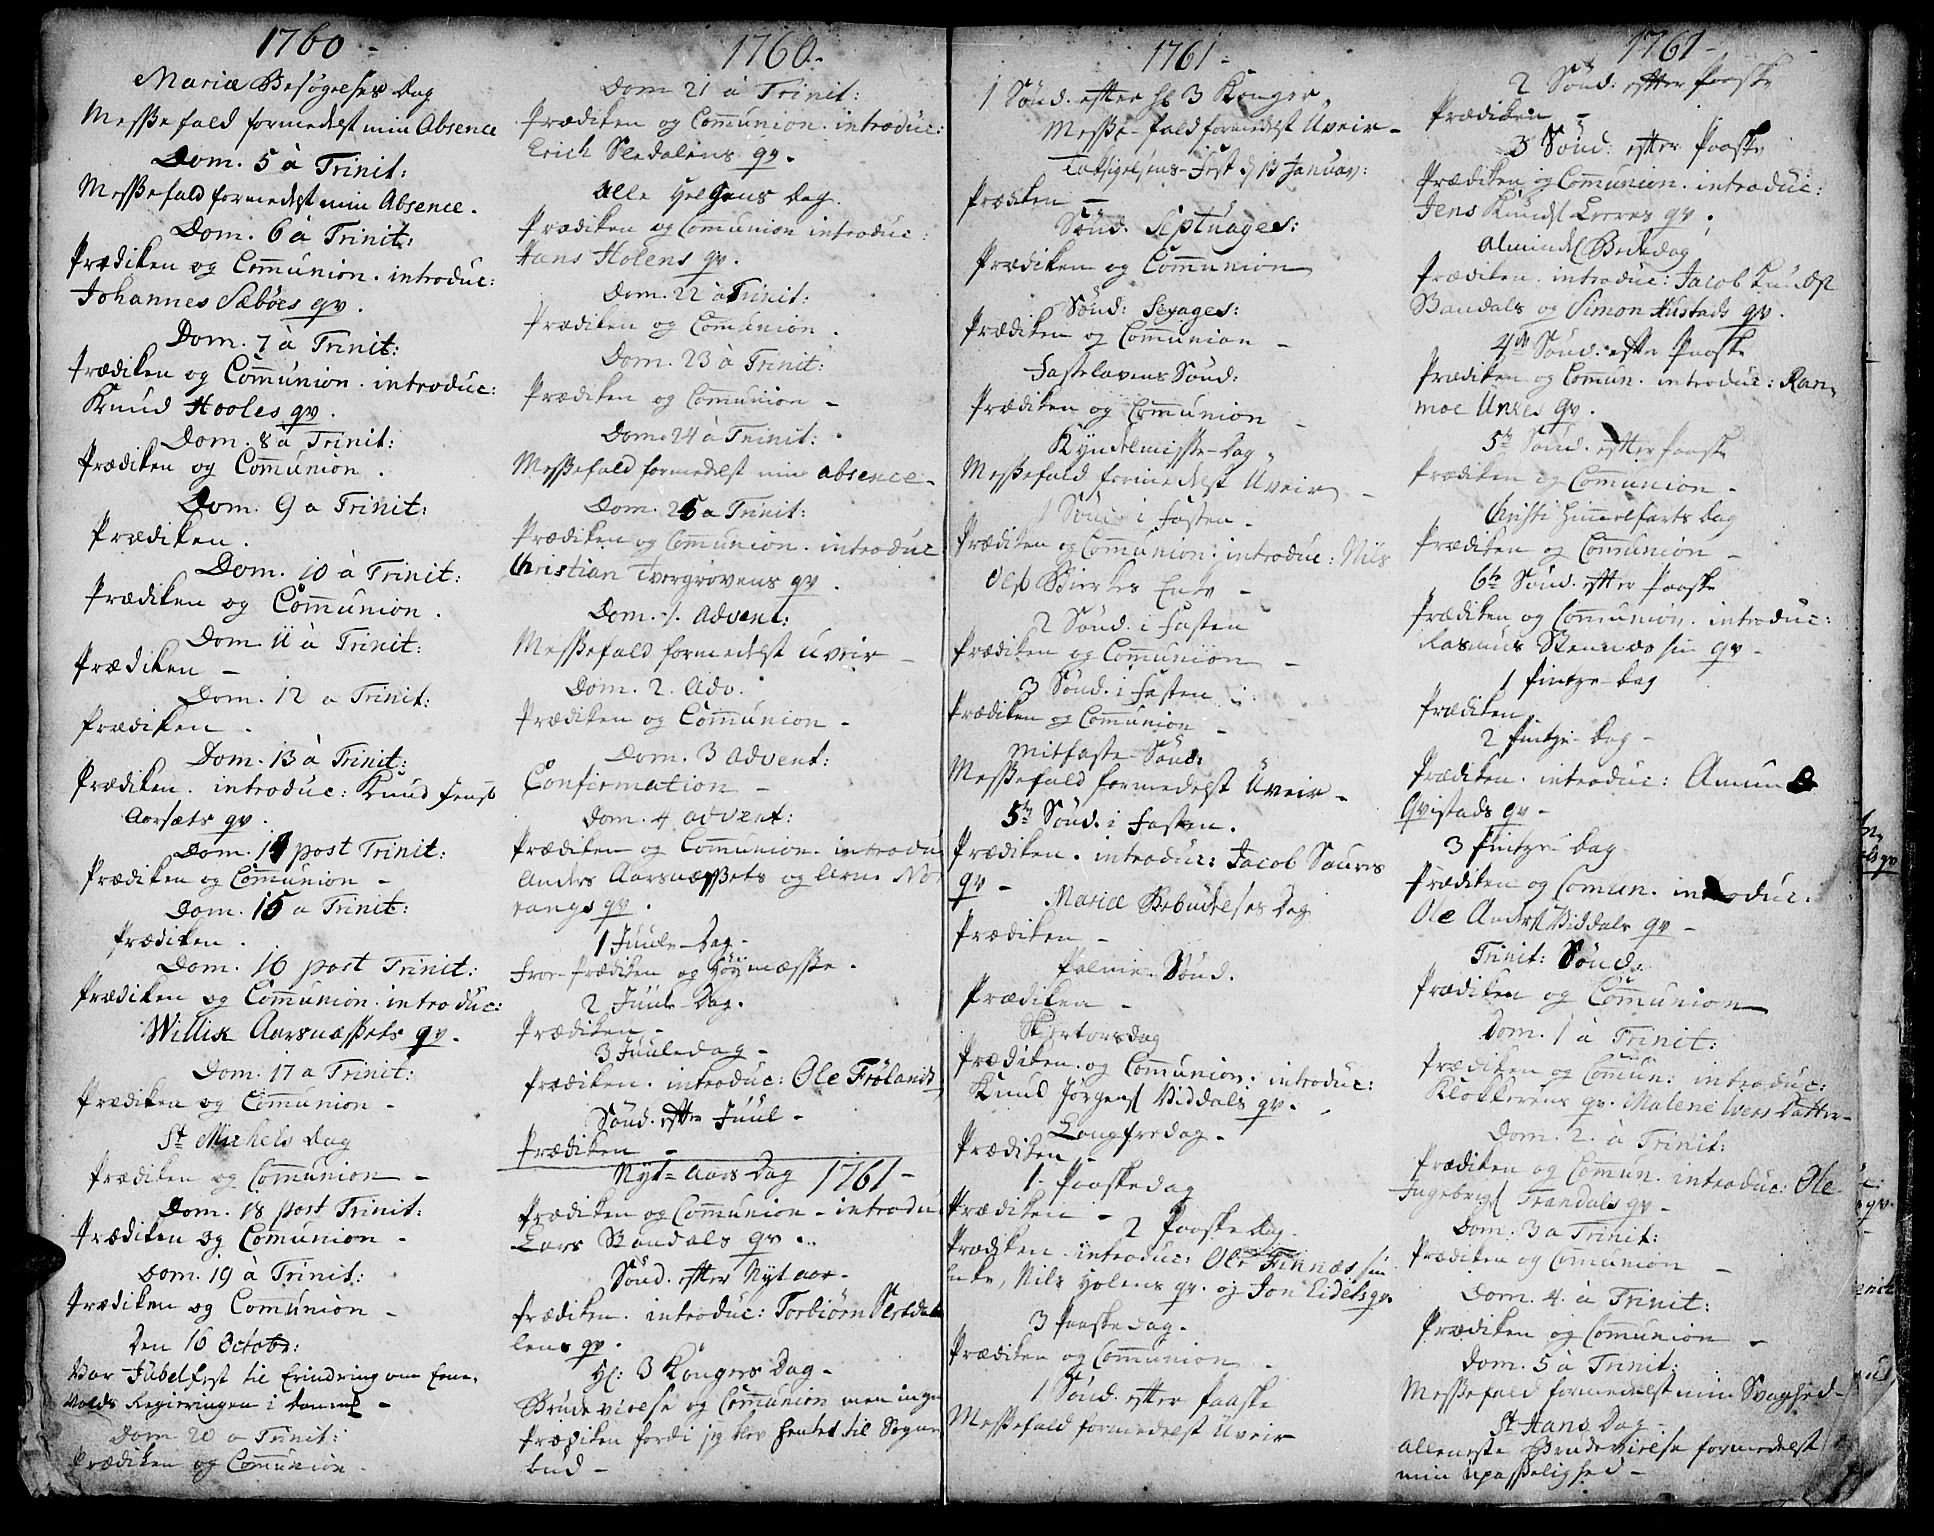 1760 -
Mariæ Besøgelses Dag
Messefald formedelst min Absence
Dom. 5 à Trinit:
Messefald formedelst min Absence.
Dom. 6 à Trinit:
Prædiken og Com̄union. introduc:
Johannes Sæbøes qv.
Dom. 7 à Trinit:
Prædiken og Com̄union. introduc:
Knud Hooles qv.
Dom. 8 à Trinit:
Prædiken og Com̄union.
Dom. 9 a Trinit:
Prædiken.
Dom. 10 à Trinit:
Prædiken og Com̄union.
Dom. 11 à Trinit:
Prædiken -
Dom. 12 a Trinit:
Prædiken.
Dom. 13 à Trinit:
Prædiken. introduc: Knud Jens
Aarsæts qv.
Dom. 14 post Trinit:
Prædiken og Com̄union -
Dom. 15 a Trinit:
Prædiken.
Dom. 16 post Trinit:
Prædiken og Com̄union. introduc:
Willik Aarsnæssets qv.
Dom. 17 a Trinit:
Prædiken og Com̄union -
St Michels Dag
Prædiken og Com̄union -
Dom. 18 post Trinit:
Prædiken og Com̄union -
Dom. 19 à Trinit:
Prædiken og Com̄union -
Den 16 Octobr:
Var Jubelfest til Erindring om Ene-
volds Regieringen i Danm -
Dom. 20 a Trinit:
Prædiken og Com̄union -
1760 -
Dom 21 à Trinit:
Prædiken og Com̄union. introduc:
Erich Sledalens qv.
Alle Helgens Dag.
Prædiken og Com̄union introduc:
Hans Holens qv.
Dom. 22 à Trinit:
Prædiken og Com̄union.
Dom. 23 à Trinit:
Prædiken og Com̄union -
Dom. 24 à Trinit:
Messefald formedelst min absence -
Dom. 25 a Trinit:
Prædiken og Com̄union. introduc
Christian Tvergrovens qv.
Dom. 1. Advent:
Messefald formedelst Uveir -
Dom. 2. Adv.
Prædiken og Com̄union -
Dom. 3 Advent:
Confirmation -
Dom. 4 advent:
Prædiken og Com̄union. introdu
Anders Aarsnæssets og Arne No
rangs qv.
1 Juule-Dag -
Froe-Prædiken og Høymæsse.
2 Juule-Dag.
Prædiken -
3 Juuledag -
Prædiken. introduc: Ole Frølands
Sønd. efter Juul -
Prædiken -
Nyt-Aars Dag 1761 -
Prædiken og Com̄union - introdu
Lars Bondals qv.
Sønd. efter Nyt aar -
Prædiken. introduc: Torbiørn
lens qv.
Hl: 3 Kongers Dag -
Brudevielse og Com̄union men ingen
Prædiken fordi jeg blev hentet til Sogne
bud -
1761 -
1 Sønd. efter Hl 3 Konger,
Messe-fald formedelst Uveir -
Taksigelsens-Fest d 13 Januar:
Prædiken -
Sønd. Septuages:
Prædiken og Com̄union
Sønd: Sexages:
Prædiken og Com̄union -
Fastelavens Sønd:
Prædiken og Com̄union -
Kyndelmisse-Dag,
Messefald formedelst Uveir -
1 Sønd i Fasten -
Prædiken og Com̄union. introduc: Niils
Ols Bierkes Enke -
2 Sønd. i Fasten
Prædiken og Com̄union -
3 Sønd. i Fasten
Prædiken og Com̄union -
Midfaste-Sønd:
Messefald formedelst Uveir -
5te Sønd. i Fasten.
Prædiken. introduc: Jacob Saures
qv -
Mariæ Bebudelses Dag
Prædiken -
Palme-Sønd.
Prædiken -
Skiertorsdag
Prædiken. og Com̄union. introduc:
Knud Jørgens Viddals qv.
Langfredag -
Prædiken -
1. Paaskedag
Prædiken -
2 Paaske Dag -
Prædiken. introduc: Ole Finnæs
Enke, Nils Holens qv. og Jon Eidets qv.
3 Paaskedag -
Prædiken og Com̄union -
1 Sønd. efter Paaske
Messefald formedelst Uveir
1761 -
2 Sønd. efter Paaske
Prædiken -
3 Sønd: efter Paaske
Prædiken og Com̄union. introduc:
Jens Knuds Leeres qv.
Almindel Bededag
Prædiken. introduc: Jacob Knuds
Bondals og Simon Hustads qv.
4de Sønd. efter Paaske
Prædiken og Com̄un. introduc: Ran-
noe Urkes qv.
5te Sønd. efter Paaske
Prædiken og Com̄union -
Christi Himmelfarts Dag
Prædiken og Com̄union -
6te Sønd. efter Paaske
Prædiken og Com̄union. introduc:
Rasmus Stennæs qv -
1 Pintze-Dag
Prædiken
2 Pintze-Dag -
Prædiken. introduc: Amund
Qvistads qv -
3 Pintze-Dag
Prædiken og Com̄un. introduc.
Ole Anders Viddals qv -
Trinit: Sønd:
Prædiken og Com̄union
Dom. 1 à Trinit:
Prædiken og Com̄un: introduc:
Klokkerens qv. Malene Ivers Datter -
Dom. 2. à Trinit:
Prædiken og Com̄un. introduc: Ole
Ingebrigs Trandals qv -
Dom. 3 a Trinit:
Prædiken og Com̄union -
Dom. 4. à Trinit:
Prædiken og Com̄union -
Dom. 5 à Trinit:
Messefald formedelst min Svaghed -
St Hans Dag -
Alleneste Brudevielse formedelst
min Upasselighed -